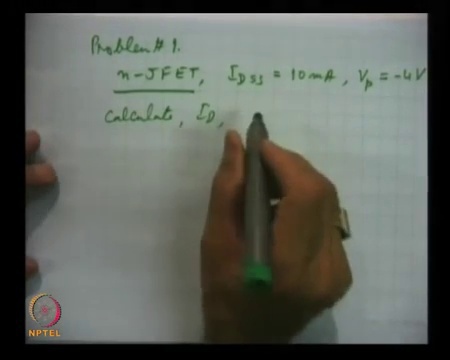 Problem # 1.
n-JFET, IDSS = 10 mA, Vp = -4V
Calculate, ID,
NPTEL